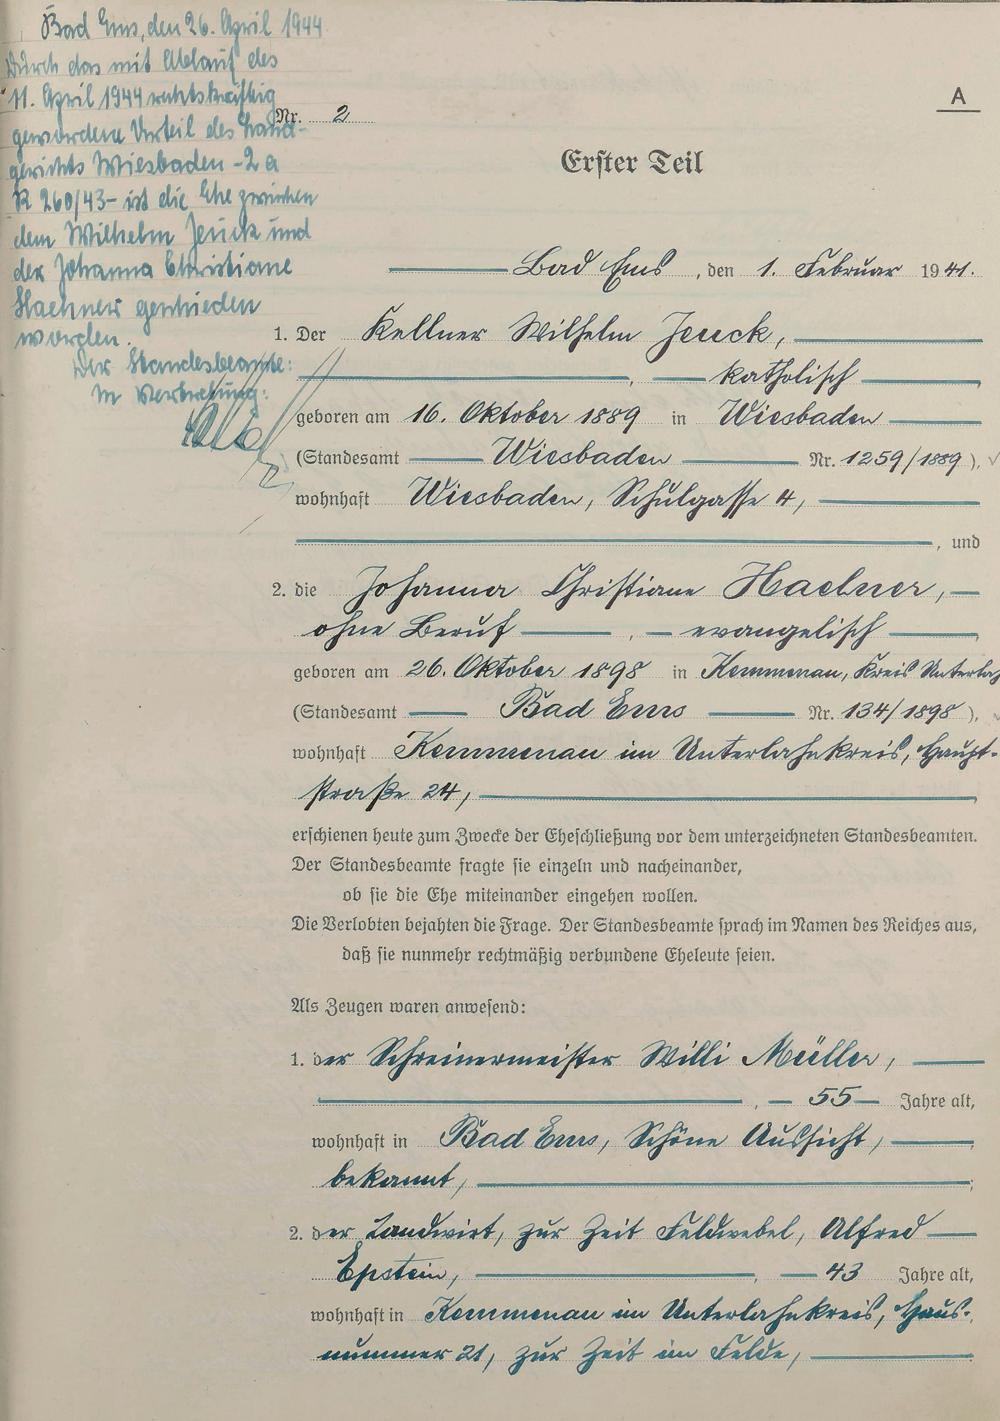 Bad Ems, den 26. April 1944
Durch das mit Ablauf des
11. April 1944 rechtskräftig
gewordene Urteil des Land-
gerichts Wiesbaden - 2 a
R 260/43 - ist die Ehe zwischen
dem Wilhelm Jeuck und
der Johanna Christiane
Haehner geschieden
worden.
Der Standesbeamte:
In Vertretung:
A
Nr. 2
Erster Teil
Bad Ems, den 1. Februar 1941.
1. Der Kellner Wilhelm Jeuck,
, katholisch
geboren am 16. Oktober 1889 in Wiesbaden
(Standesamt Wiesbaden Nr. 1259/1889),
wohnhaft Wiesbaden, Schulgasse 4,
, und
2. die Johanna Christiane Haehner,
ohne Beruf, evangelisch
geboren am 26. Oktober 1898 in Kemmenau, Kreis Unterlah
(Standesamt Bad Ems Nr. 134/1898),
wohnhaft Kemmenau im Unterlahnkreis, Haupt-
straße 24,
erschienen heute zum Zwecke der Eheschließung vor dem unterzeichneten Standesbeamten.
Der Standesbeamte fragte sie einzeln und nacheinander,
ob sie die Ehe miteinander eingehen wollen.
Die Verlobten bejahten die Frage. Der Standesbeamte sprach im Namen des Reiches aus,
daß sie nunmehr rechtmäßig verbundene Eheleute seien.
Als Zeugen waren anwesend:
1. der Schreinermeister Willi Müller,
, 55 Jahre alt,
wohnhaft in Bad Ems, Schöne Aussicht,
bekannt,;
2. der Landwirt, zur Zeit Feldwebel, Alfred
Epstein, , 43 Jahre alt,
wohnhaft in Kemmenau im Unterlahnkreis, Haus-
nummer 21, zur Zeit im Felde,